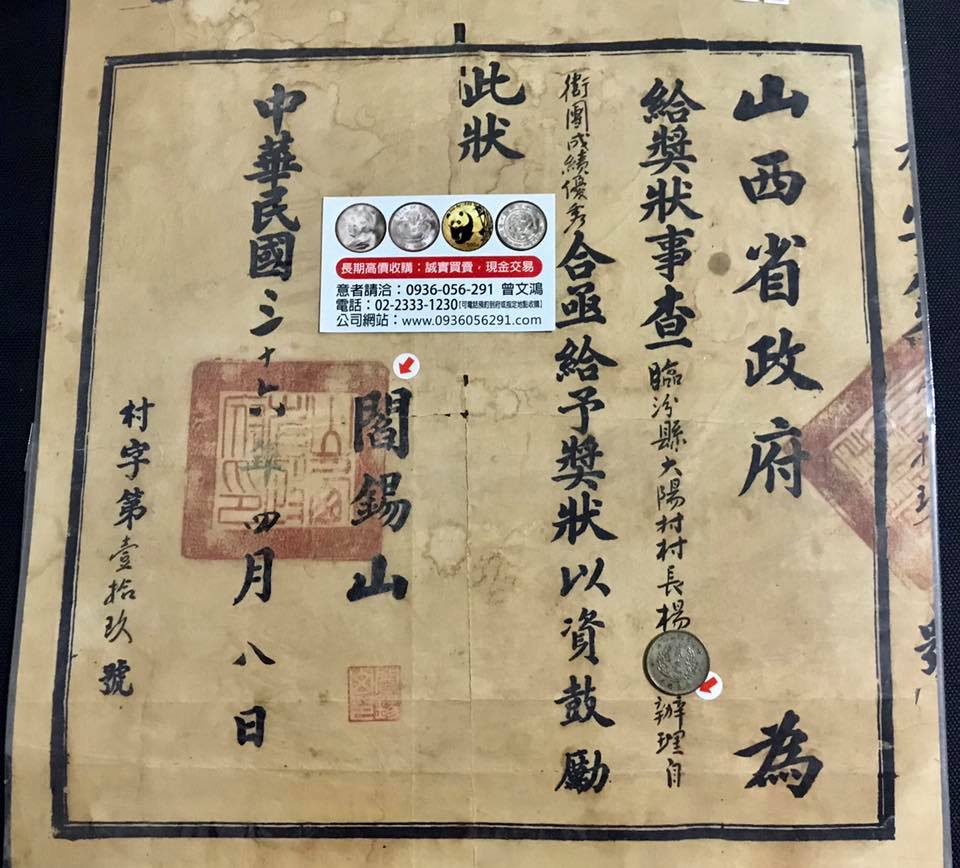 山西省政府 為
給獎狀事查臨汾縣大陽村村長楊 辦理自
衛團成績優秀合亟給予獎狀以資鼓勵
此狀
閻錫山
中華民國三十六年四月八日
村字第壹拾玖號
長期高價收購：誠實買賣，現金交易
意者請洽：0936-056-291 曾文鴻
電話：02-2333-1230【可電話預約到府或指定地點收購】
公司網站：www.0936056291.com